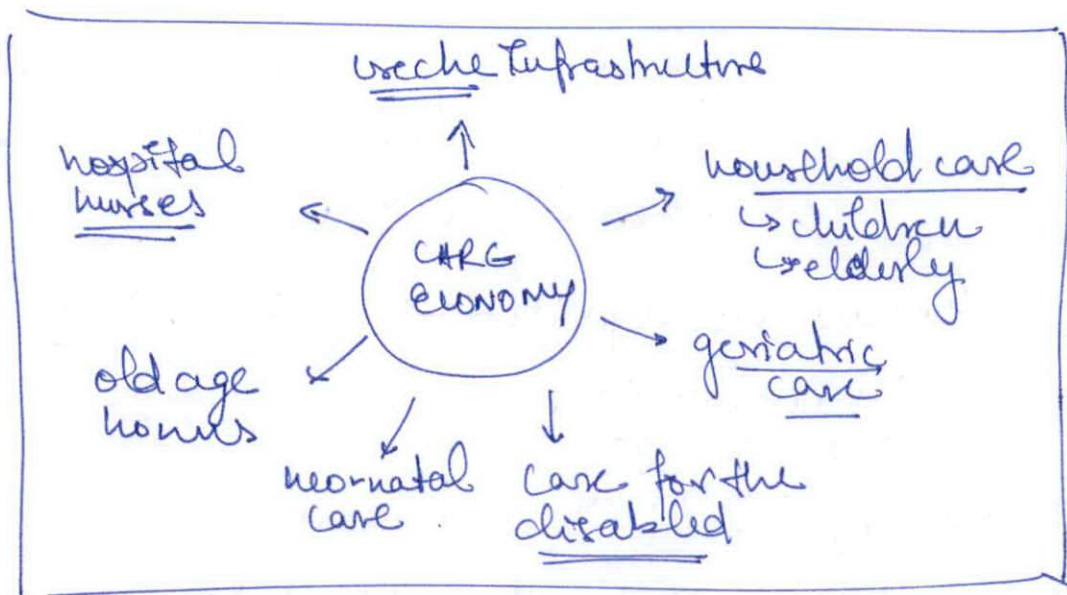 creche Infrastructure
hospital
nurses
household care
↳ children
↳ elderly
CARE
ECONOMY
geriatric
care
old age
homes
neo-natal
care
care for the
disabled